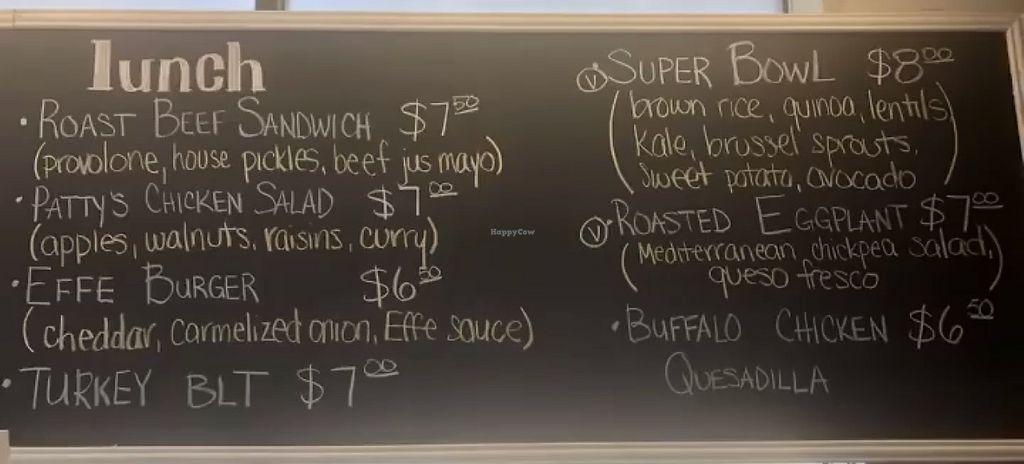 lunch
• ROAST BEEF SANDWICH $7 50
(provolone, house pickles, beef jus mayo)
• PATTY'S CHICKEN SALAD $7 00
(apples, walnuts, raisins, curry)
• EFFE BURGER $6 50
(cheddar, carmelized onion, Effe sauce)
• TURKEY BLT $7 00
V SUPER BOWL $8 00
(brown rice, quinoa, lentils,
Kale, brussel sprouts,
sweet potato, avocado)
V • ROASTED EGGPLANT $7 00
(Mediterranean chickpea salad,
queso fresco)
• BUFFALO CHICKEN $6 50
QUESADILLA
HappyCow